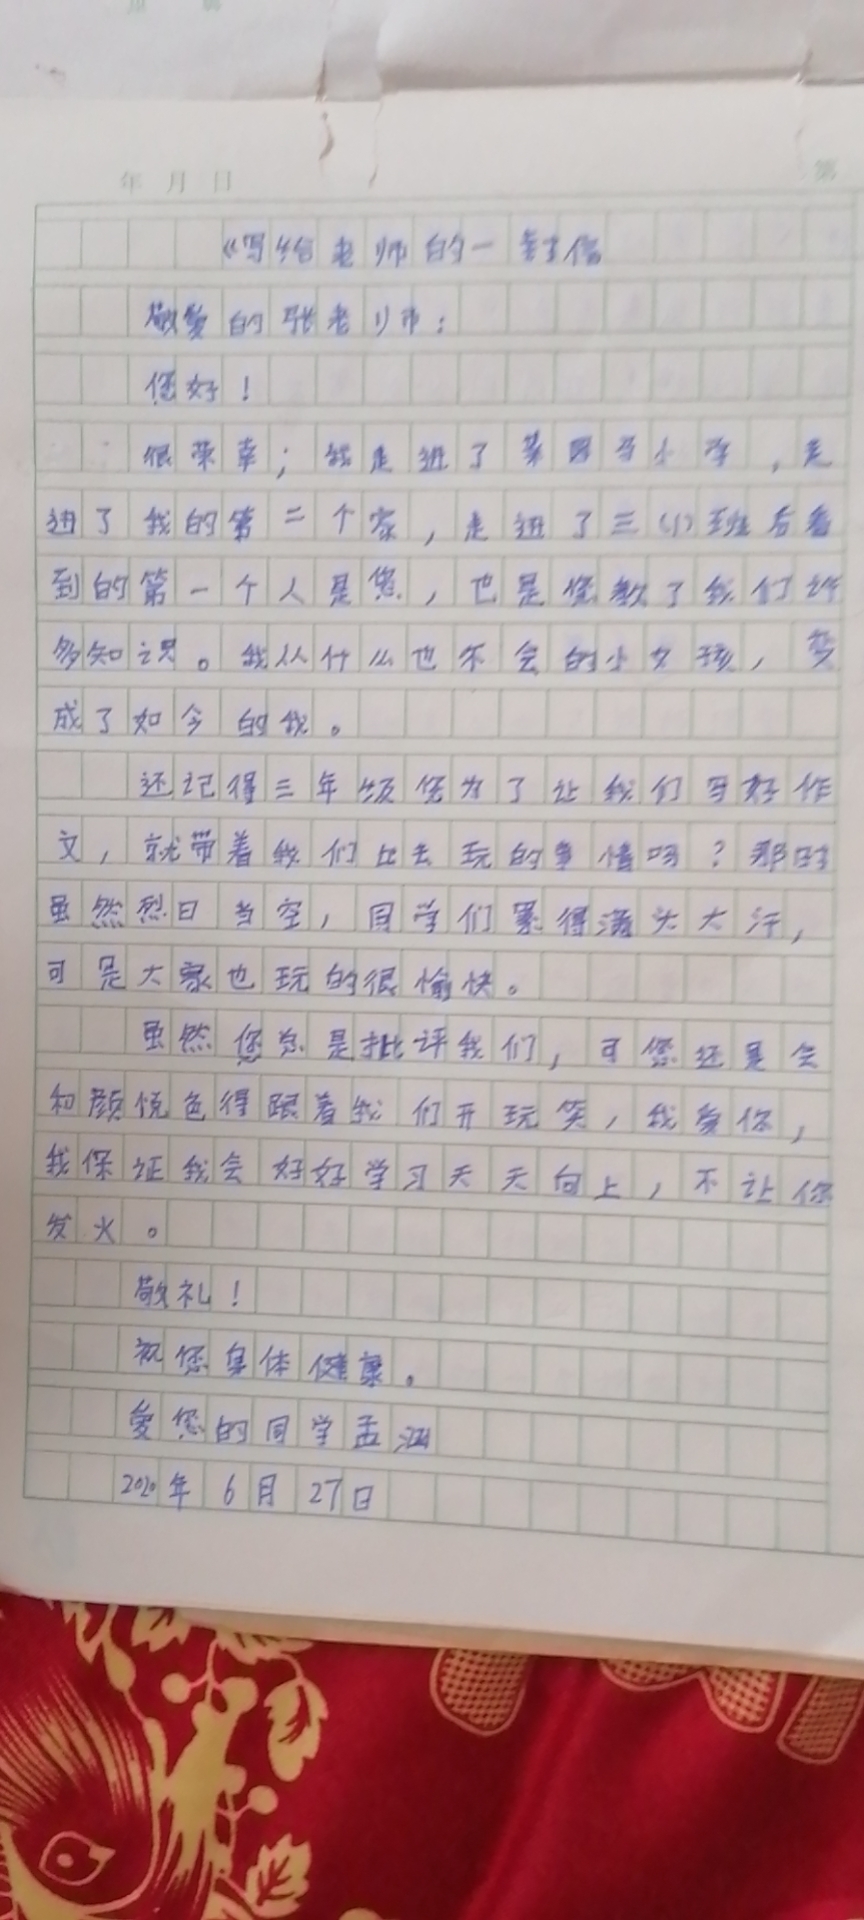 年 月 日
第
《写给老师的一封信
敬爱的张老师：
您好！
很荣幸；我走进了第四号小学，走
进了我的第二个家，走进了三（1）班后看
到的第一个人是您，也是您教了我们许
多知识。我从什么也不会的小女孩，变
成了如今的我。
还记得三年级您为了让我们写好作
文，就带着我们出去玩的事情吗？那时
虽然烈日当空，同学们累得满头大汗，
可是大家也玩的很愉快。
虽然您总是批评我们，可您还是会
和颜悦色得跟着我们开玩笑，我爱你，
我保证我会好好学习天天向上，不让你
发火。
敬礼！
祝您身体健康。
爱您的同学孟涵
2020年6月27日